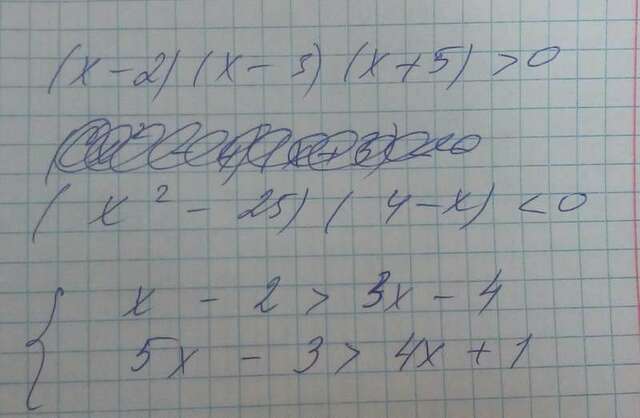 (x-2)(x-3)(x+5)>0
(x²-25)(4-x)<0
{ x-2>3x-4
5x-3>4x+1